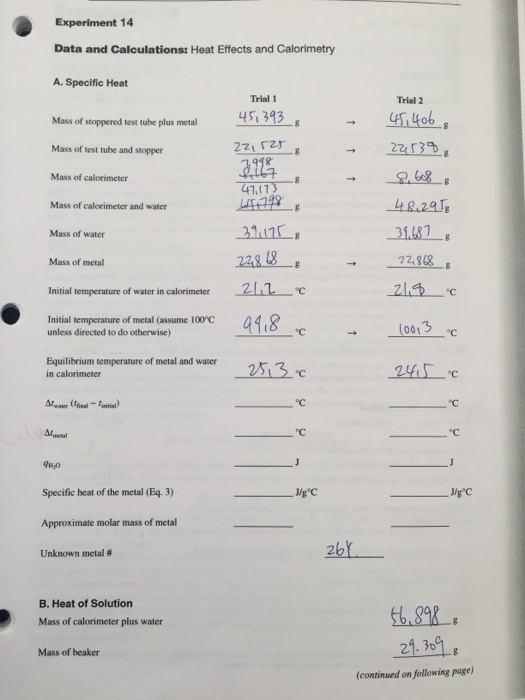 Experiment 14
Data and Calculations: Heat Effects and Calorimetry
A. Specific Heat
Trial 1 Trial 2
Mass of stoppered test tube plus metal 45,393 g → 45,406 g
Mass of test tube and stopper 22,525 g → 22,538 g
7,998
Mass of calorimeter g → 8,608 g
47,173
Mass of calorimeter and water g 48,295 g
Mass of water 39,175 g 39,687 g
Mass of metal 22,868 g → 22,868 g
Initial temperature of water in calorimeter 21,2 °C °C
Initial temperature of metal (assume 100°C
unless directed to do otherwise) 99,8 °C → 100,3 °C
Equilibrium temperature of metal and water
in calorimeter 25,3 °C 24,5 °C
Δt water (t final − t initial) °C °C
Δt metal °C °C
qH₂O J J
Specific heat of the metal (Eq. 3) J/g°C J/g°C
Approximate molar mass of metal
Unknown metal #
B. Heat of Solution
Mass of calorimeter plus water 56,898 g
Mass of beaker 29.309 g
(continued on following page)